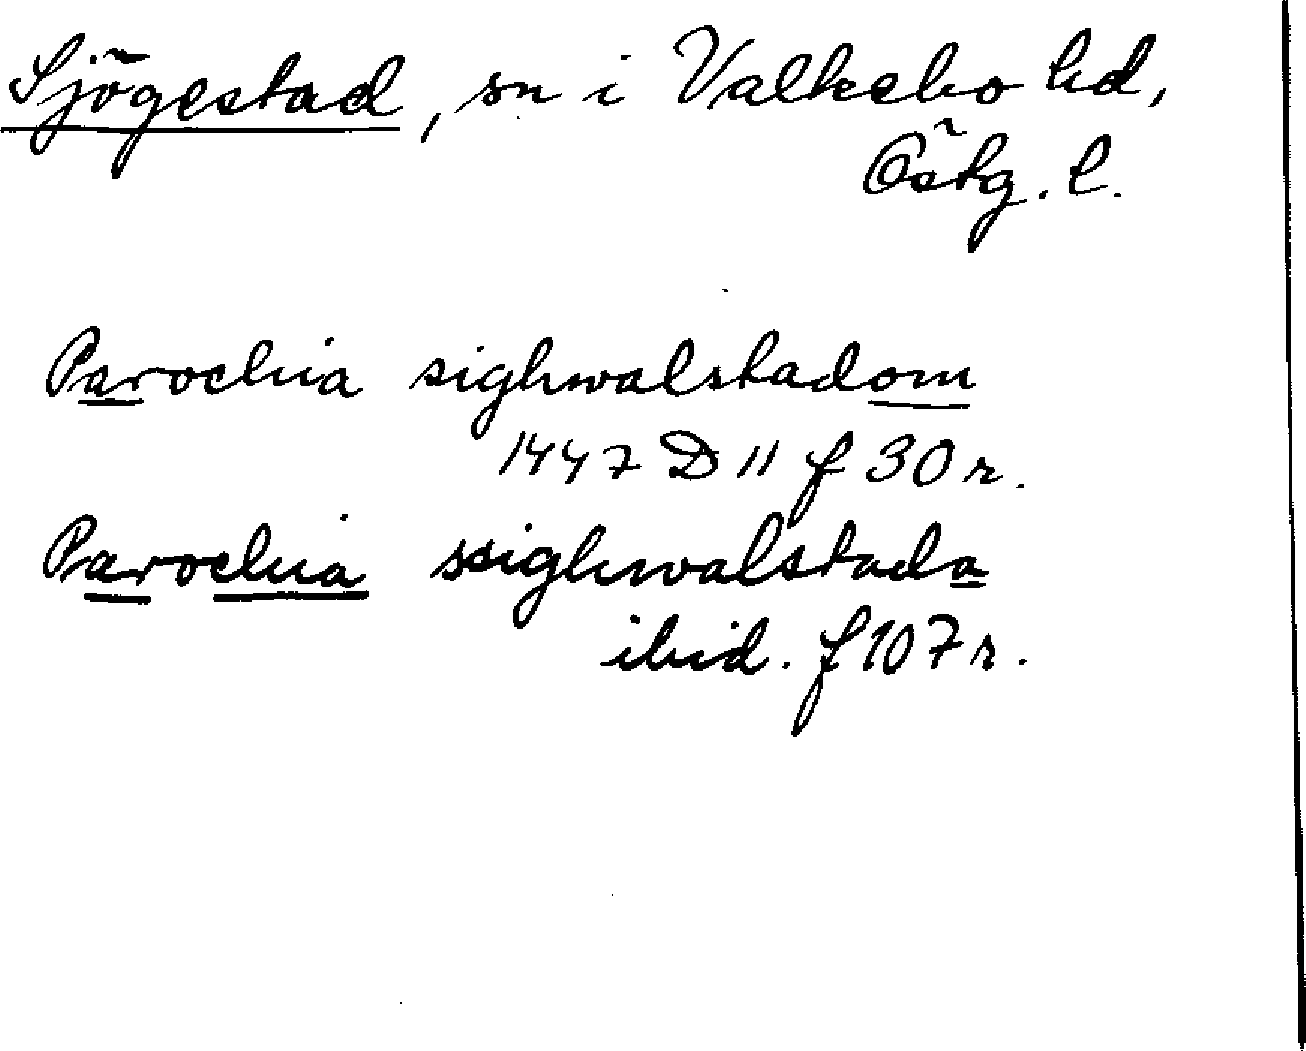 Sjögestad, sn i Valkebo hd,
Östg. l.
Parochia sighwalstadom
1447 D 11 f 30 r.
Parochia ssighwalstada
ibid. f 107 r.